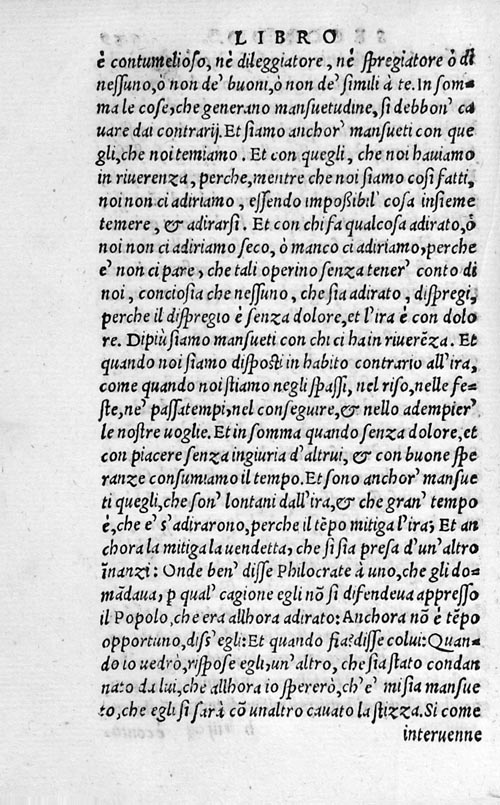 LIBRO
è contumelioso, nè dileggiatore, nè ſpregiatore ò di
neſſuno, ò non de' buoni, ò non de' ſimili à te. In ſom=
ma le coſe, che generano manſuetudine, ſi debbon' ca
uare dai contrarij. Et ſiamo anchor' manſueti con que
gli, che noi temiamo. Et con quegli, che noi hauiamo
in riuerenza, perche, mentre che noi ſiamo coſi fatti,
noi non ci adiriamo, eſſendo impoßibil' coſa inſieme
temere, & adirarſi. Et con chi fa qualcoſa adirato, ò
noi non ci adiriamo ſeco, ò manco ci adiriamo, perche
e' non ci pare, che tali operino ſenza tener' conto di
noi, concioſia che neſſuno, che ſia adirato, diſpregi,
perche il diſpregio è ſenza dolore, et l'ira è con dolo
re. Dipiù ſiamo manſueti con chi ci ha in riuerēza. Et
quando noi ſiamo diſpoſti in habito contrario all'ira,
come quando noi ſtiamo negli ſpaſſi, nel riſo, nelle fe=
ſte, ne' paſſatempi, nel conſeguire, & nello adempier'
le noſtre uoglie. Et in ſomma quando ſenza dolore, et
con piacere ſenza ingiuria d'altrui, & con buone ſpe
ranze conſumiamo il tempo. Et ſono anchor' manſue
ti quegli, che ſon' lontani dall'ira, & che gran' tempo
è, che e' s'adirarono, perche il tēpo mitiga l'ira; Et an
chora la mitiga la uendetta, che ſi ſia preſa d'un'altro
īnanzi: Onde ben' diſſe Philocrate à uno, che gli do=
mādaua, p qual' cagione egli nō ſi difendeua appreſſo
il Popolo, che era allhora adirato: Anchora nō è tēpo
opportuno, diſſ' egli: Et quando fia? diſſe colui: Quan=
do io uedrò, riſpoſe egli, un'altro, che ſia ſtato condan
nato da lui, che allhora io ſpererò, ch'e' mi ſia manſue
to, che egli ſi ſarà cō unaltro cauato la ſtizza. Si come
interuenne